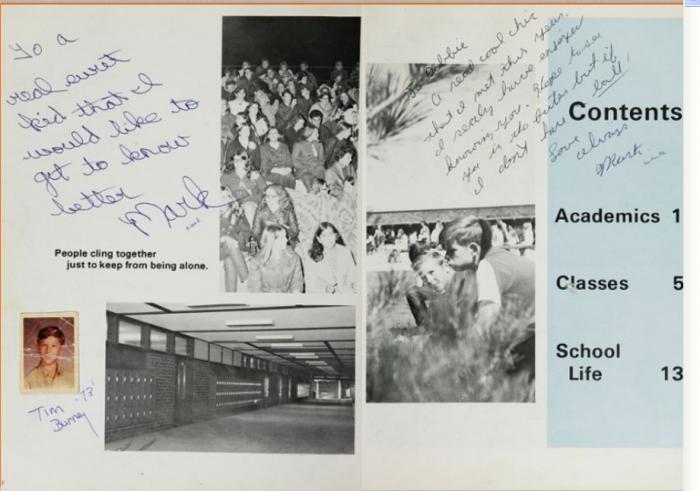 To a
real sweet
kid that I
would like to
get to know
better
Mark
People cling together
just to keep from being alone.
Tim '73'
Debbie
A real cool chic
that I met this year.
I really have enjoyed
knowing you. Hope to see
you in the future but if
I don't have ball!
Love always
Mark
Contents
Academics 1
Classes 5
School
Life 13